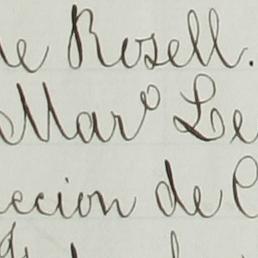 de Rosell.
Mar° Le
eccion de C